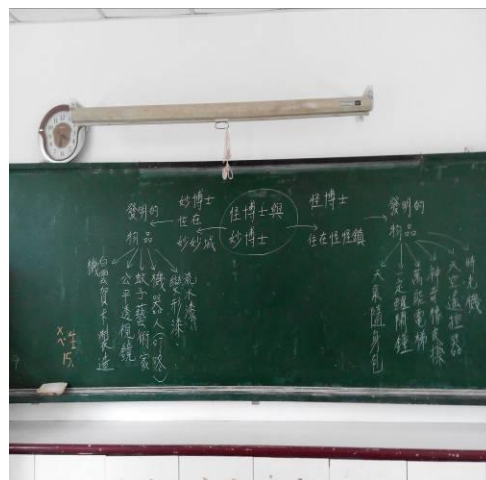 怪博士與
妙博士
妙博士
住在
妙妙城
發明的
物品
流水漆
變形漆
機器人(可吃)
蚊子藝術家
公平透視鏡
白雲賀卡製造
機
怪博士
住在怪怪鎮
發明的
物品
時光機
太空遙控器
萬能電梯
一定醒鬧鐘
隨身包